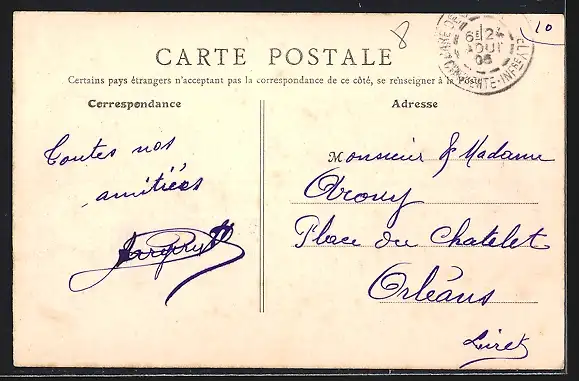 8
10
6E 24
AOUT
05
CARTE POSTALE
Certains pays étrangers n'acceptant pas la correspondance de ce côté, se renseigner à la Poste
Correspondance
Adresse
Toutes nos
amitiées
Monsieur & Madame
Place du Chatelet
Orléans
Loiret